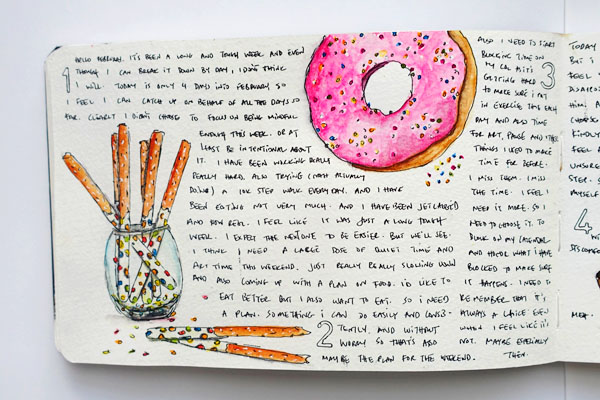 HELLO FEBRUARY. IT'S BEEN A LONG AND TOUGH WEEK AND EVEN
1 THOUGH I CAN BREAK IT DOWN BY DAY, I DON'T THINK
I WILL. TODAY IS ONLY 4 DAYS INTO FEBRUARY SO
I FEEL I CAN CATCH UP ON BEHALF OF ALL THE DAYS SO
FAR. CLEARLY I DIDN'T CHOOSE TO FOCUS ON BEING MINDFUL
ENOUGH THIS WEEK. OR AT
LEAST BE INTENTIONAL ABOUT
IT. I HAVE BEEN WORKING REALLY
REALLY HARD. ALSO TRYING (NOT ALWAYS
DOING) A 10K STEP WALK EVERYDAY. AND I HAVE
BEEN EATING NOT VERY MUCH. AND I HAVE BEEN
AND I FEEL LIKE IT WAS JUST A LONG TOUGH
WEEK. I EXPECT THE NEXT ONE TO BE EASIER. BUT WE'LL SEE.
I THINK I NEED A LARGE DOSE OF QUIET TIME AND
ART TIME THIS WEEKEND. JUST REALLY REALLY SLOWING DOWN
AND ALSO COMING UP WITH A PLAN ON FOOD. I'D LIKE TO
EAT BETTER BUT I ALSO WANT TO EAT. SO I NEED
A PLAN. SOMETHING I CAN DO EASILY AND CONSIS-
2 TENTLY. AND WITHOUT
WORRY SO THAT'S ALSO
MAYBE THE PLAN FOR THE WEEKEND.
ALSO I NEED TO START
BLOCKING TIME ON
MY CAL AS IT IS 3
GETTING HARD
TO MAKE SURE I PUT
IN EXERCISE TIME EACH
DAY AND ALSO TIME
FOR ART, PAUSE AND OTHER
THINGS I USED TO MAKE
TIME FOR BEFORE.
I MISS THEM. I MISS
THE TIME. I FEEL I
NEED IT MORE. SO I
NEED TO CHOOSE IT. TO
BLOCK ON MY CALENDAR
AND HONOR WHAT I HAVE
BLOCKED TO MAKE SURE
IT HAPPENS. I NEED TO
REMEMBER THAT IT'S
ALWAYS A CHOICE. EVEN
WHEN I FEEL LIKE IT'S
NOT. MAYBE ESPECIALLY
THEN.
TODAY
BUT I
FEEL
KINDLY
FEEL
STEP.
MYSELF
4